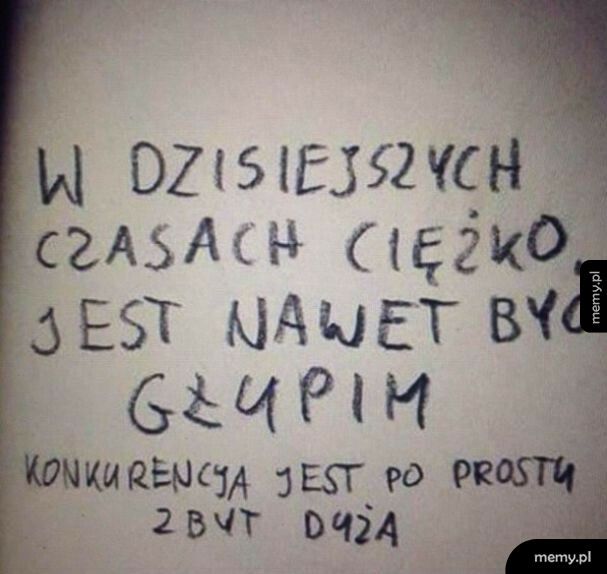 W DZISIEJSZYCH
CZASACH CIĘŻKO,
JEST NAWET BYĆ
GŁUPIM
KONKURENCJA JEST PO PROSTU
ZBYT DUŻA
memy.pl
memy.pl